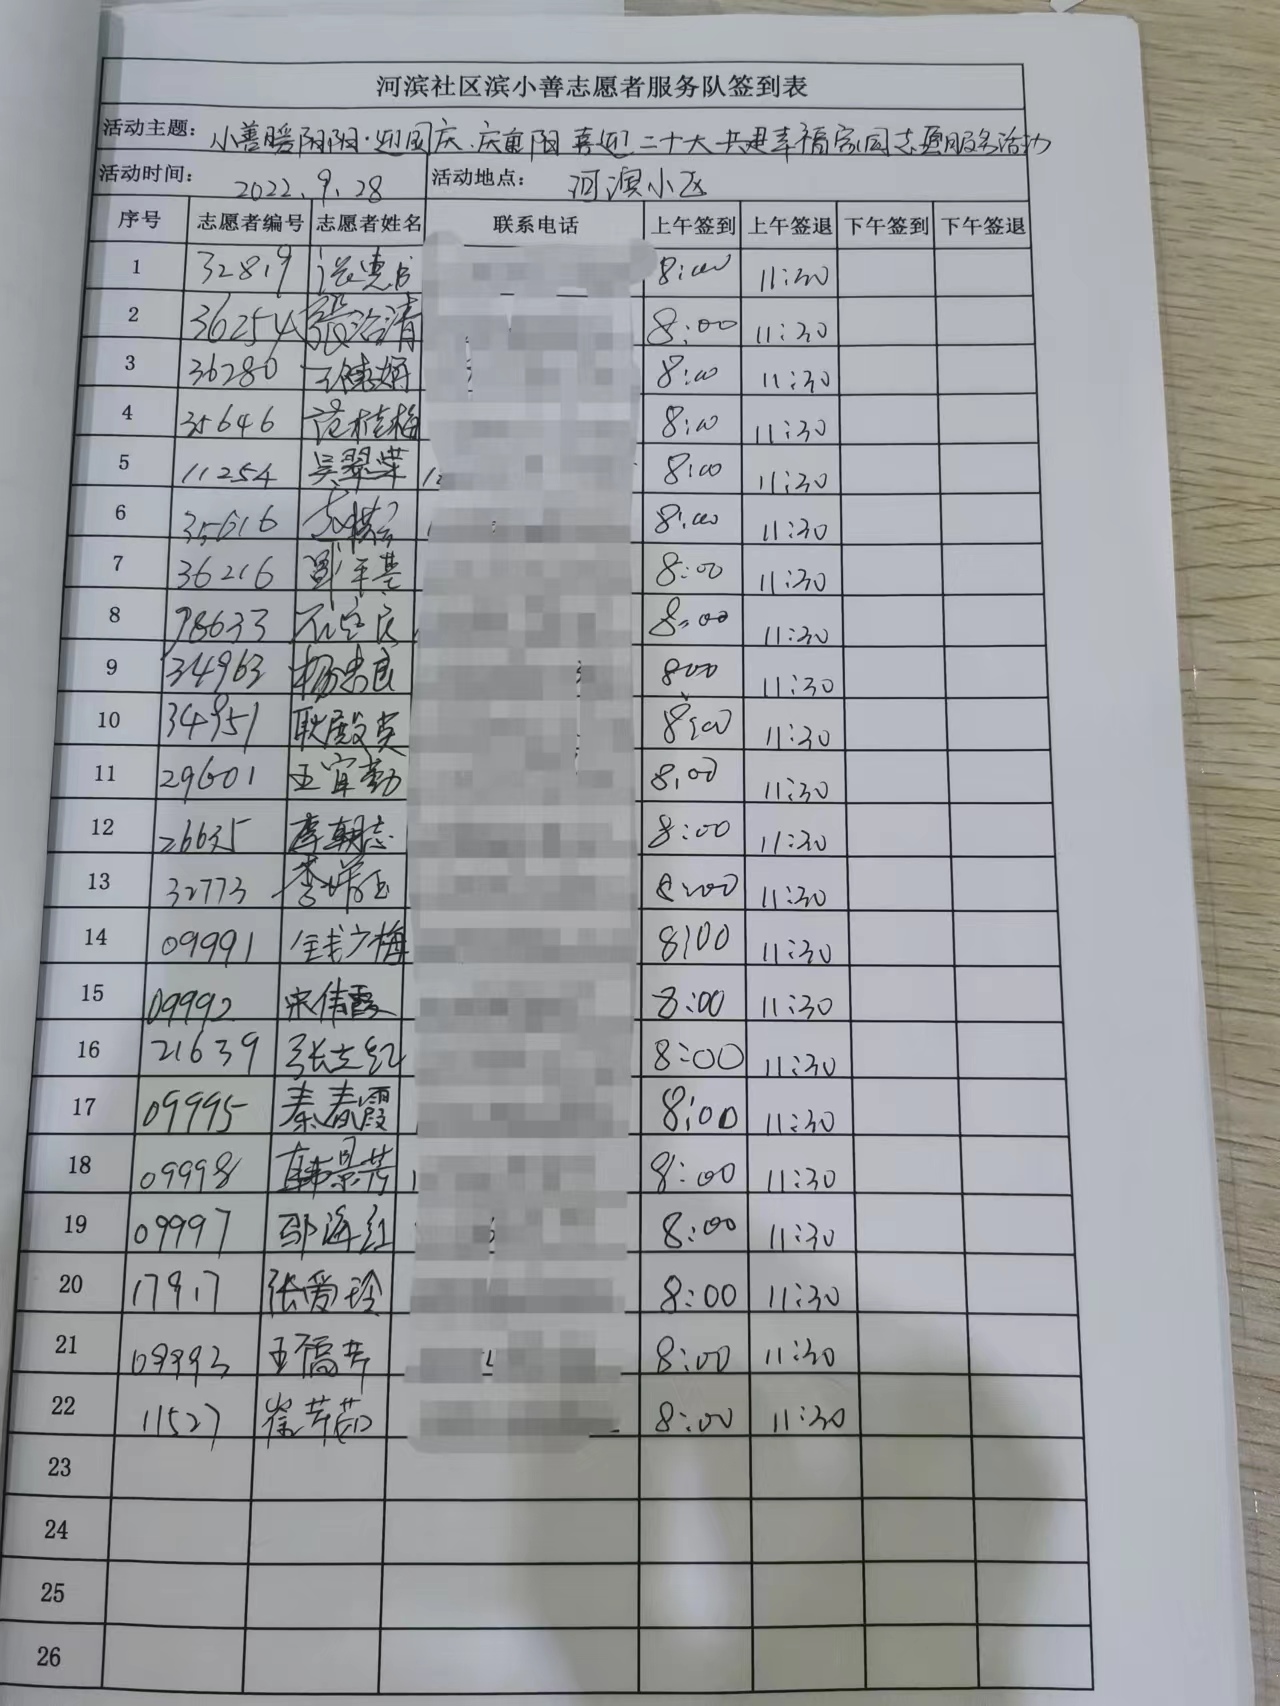 河滨社区滨小善志愿者服务队签到表
活动主题: 小善暖阳阳·迎国庆·庆重阳 喜迎二十大 共建幸福家园志愿服务活动
活动时间: 2022.9.28 活动地点: 河滨小区
序号 志愿者编号 志愿者姓名 联系电话 上午签到 上午签退 下午签到 下午签退
1 32819 8:00 11:30
2 36254 张治清 8:00 11:30
3 36280 8:00 11:30
4 35646 范桂梅 8:00 11:30
5 11254 吴翠荣 8:00 11:30
6 35616 8:00 11:30
7 36216 8:00 11:30
8 78633 8:00 11:30
9 34963 杨忠良 800 11:30
10 34951 耿殿英 8:00 11:30
11 29601 王宜勤 8:00 11:30
12 26635 李朝志 8:00 11:30
13 32773 8:00 11:30
14 09991 钱少梅 8:00 11:30
15 09992 宋伟霞 8:00 11:30
16 21639 张立红 8:00 11:30
17 09995 秦春霞 8:00 11:30
18 09998 韩景芳 8:00 11:30
19 09997 邵海红 8:00 11:30
20 17917 张爱玲 8:00 11:30
21 09993 王福芹 8:00 11:30
22 11527 崔芹茹 8:00 11:30
23
24
25
26